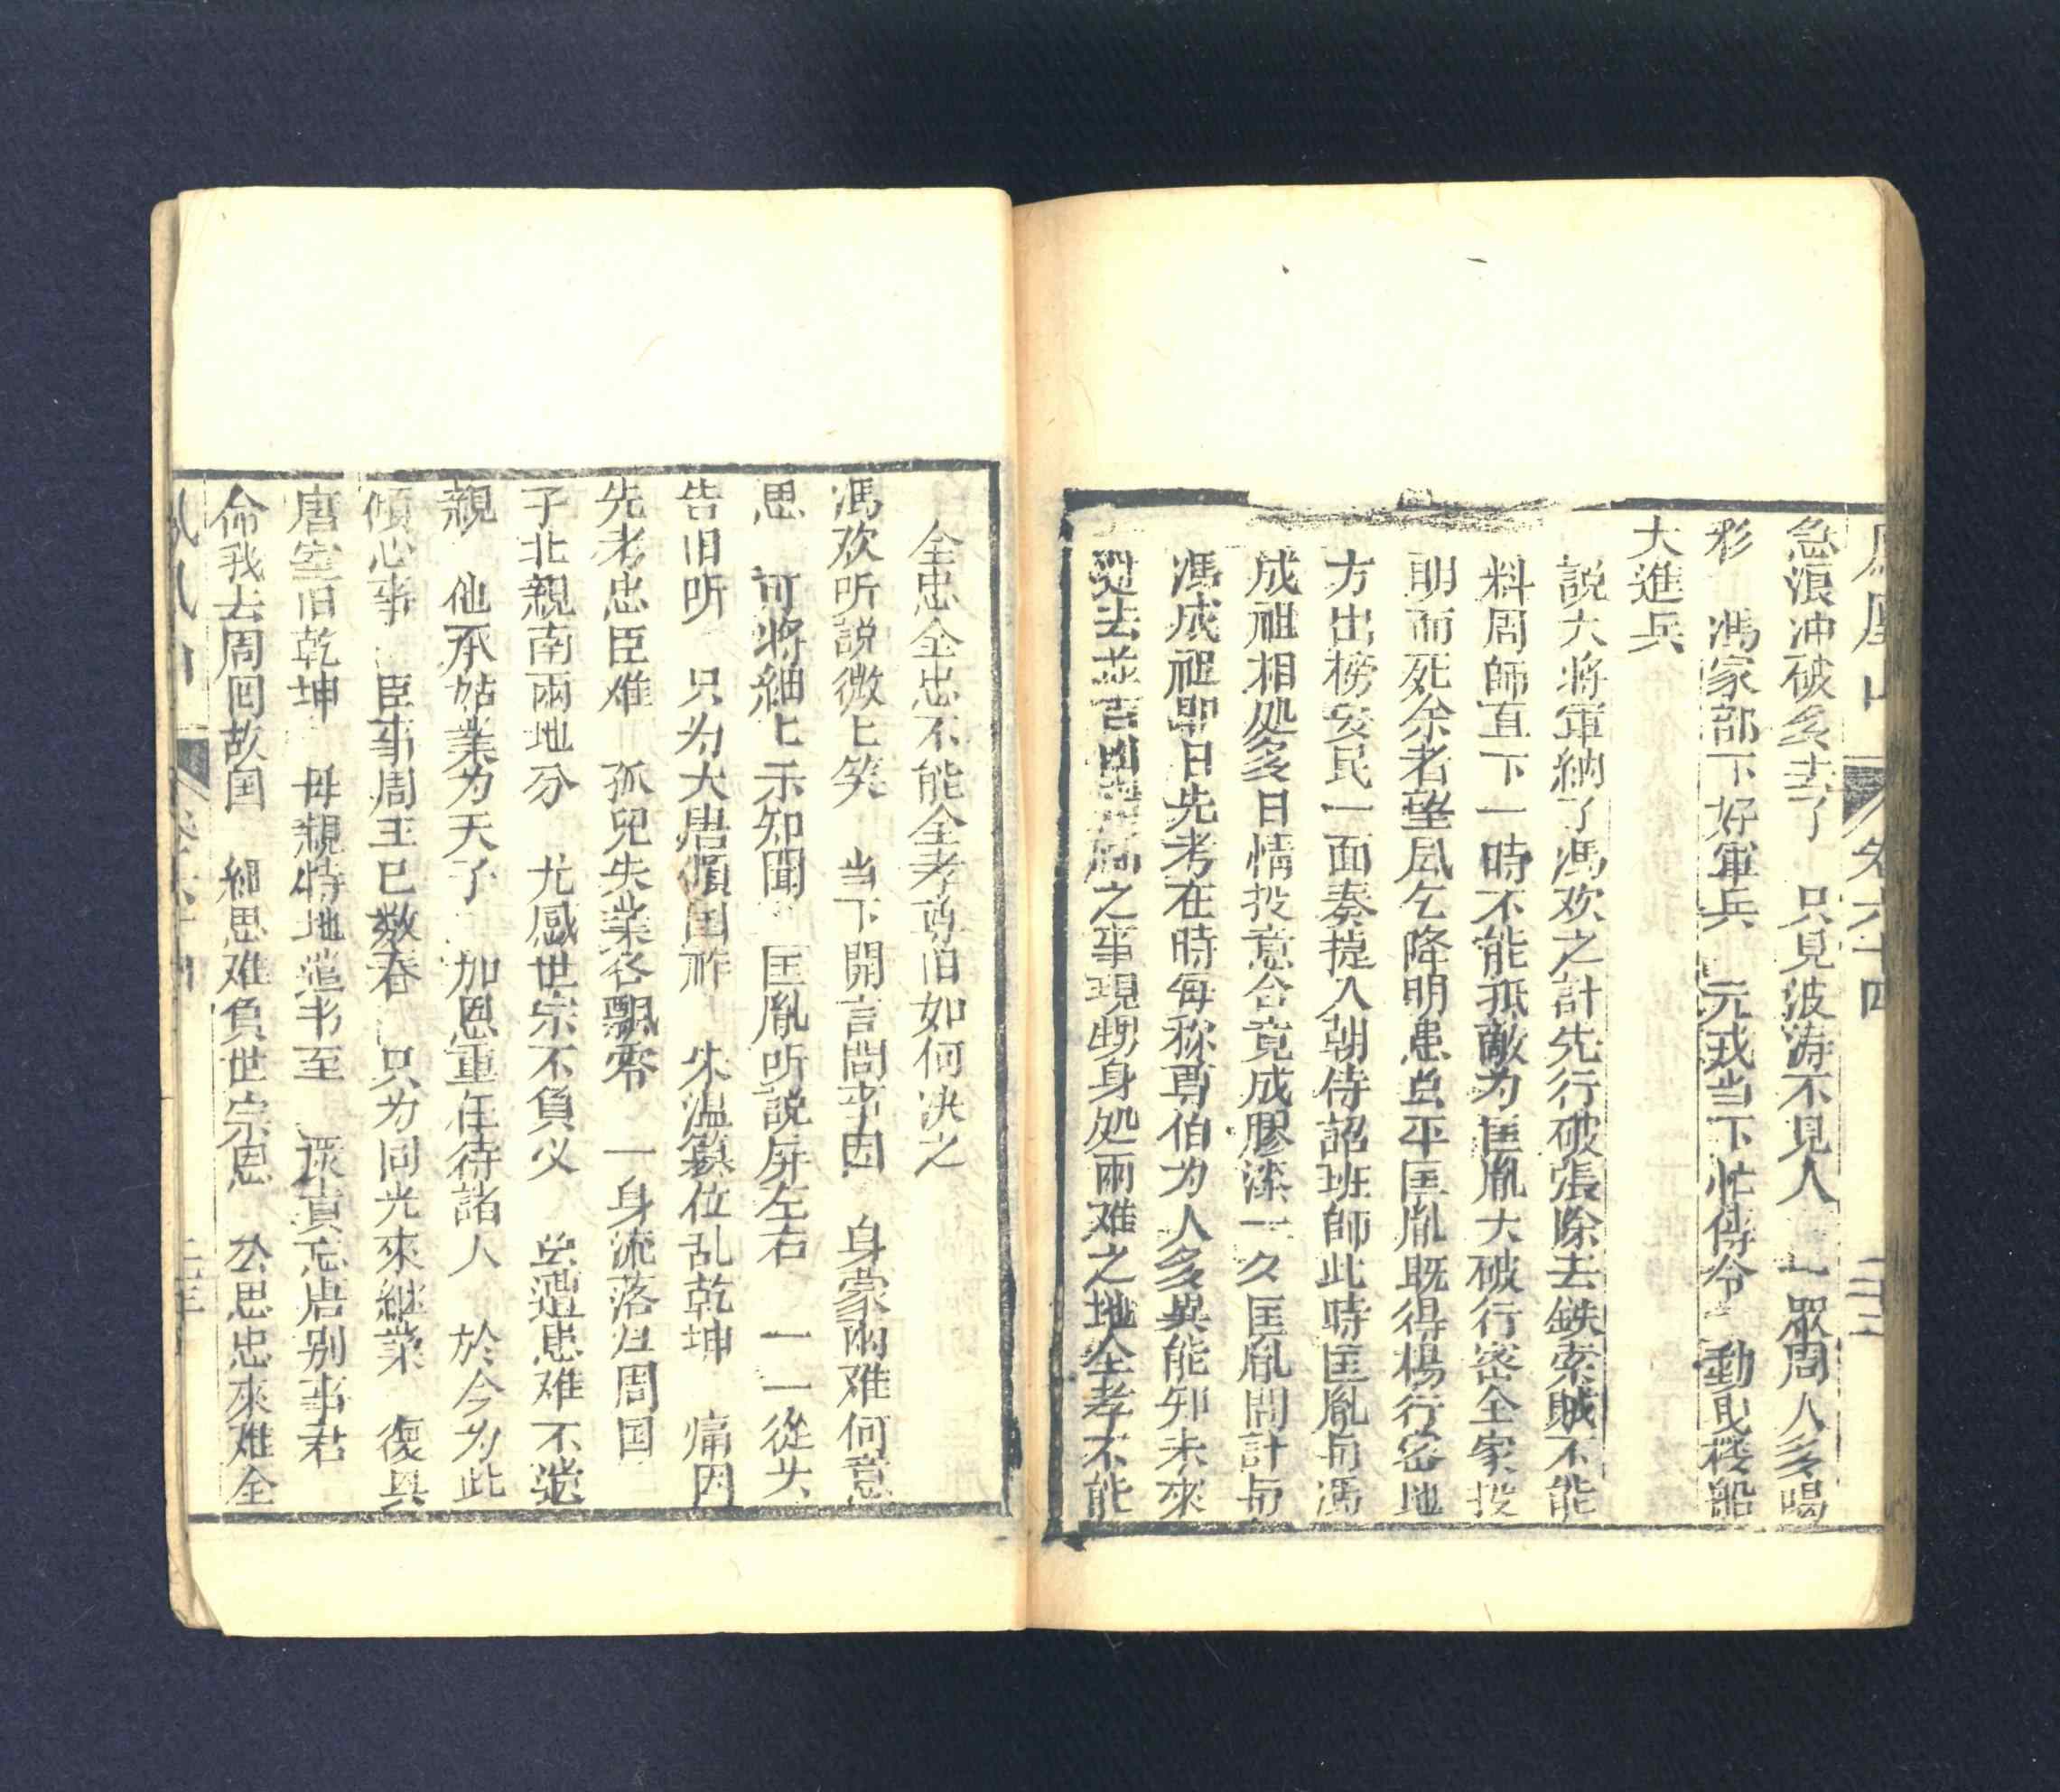 山　卷六十四
急浪冲破多去了　只見波涛不見人　眾周人多喝
彩　馮家部下好軍兵　元戎当下忙傳令　動曳楼船
大進兵
説大將軍納了馮欢之計先行破張除去鉄索賊不能
料周師直下一時不能抵敵为匡胤大破行密全家投
而死余者望風乞降明患已平匡胤既得楊行密地
方出榜安民一面奏捷入朝侍詔班師此時匡胤与馮
成祖相処多日情投意合竟成膠漆一久匡胤問計与
馮成祖即日先考在時每称尊伯为人多異能知未來
過去並吉凶之事現甥身処兩难之地全孝不能
全忠全忠不能全孝尊伯如何决之
馮欢听説微匕笑　当下開言問事因　身蒙兩难何意
思　可將細匕示知聞　匡胤听説屏左右　一一從头
告旧听　只为大唐傾国祚　朱温篡位乱乾坤　痛因
先考忠臣难　孤兒失業各飄零　一身流落在周国
子北親南兩地分　尤感世宗不負义　患难不
親　他承姑業为天子　加恩重任待諸人　於今为此
傾心事　臣事周王已数春　只为同光來継業　復具
唐室旧乾坤　母親特地遣书至　忘唐别事君
命我去周回故国　細思难負世宗恩　公思忠來难全